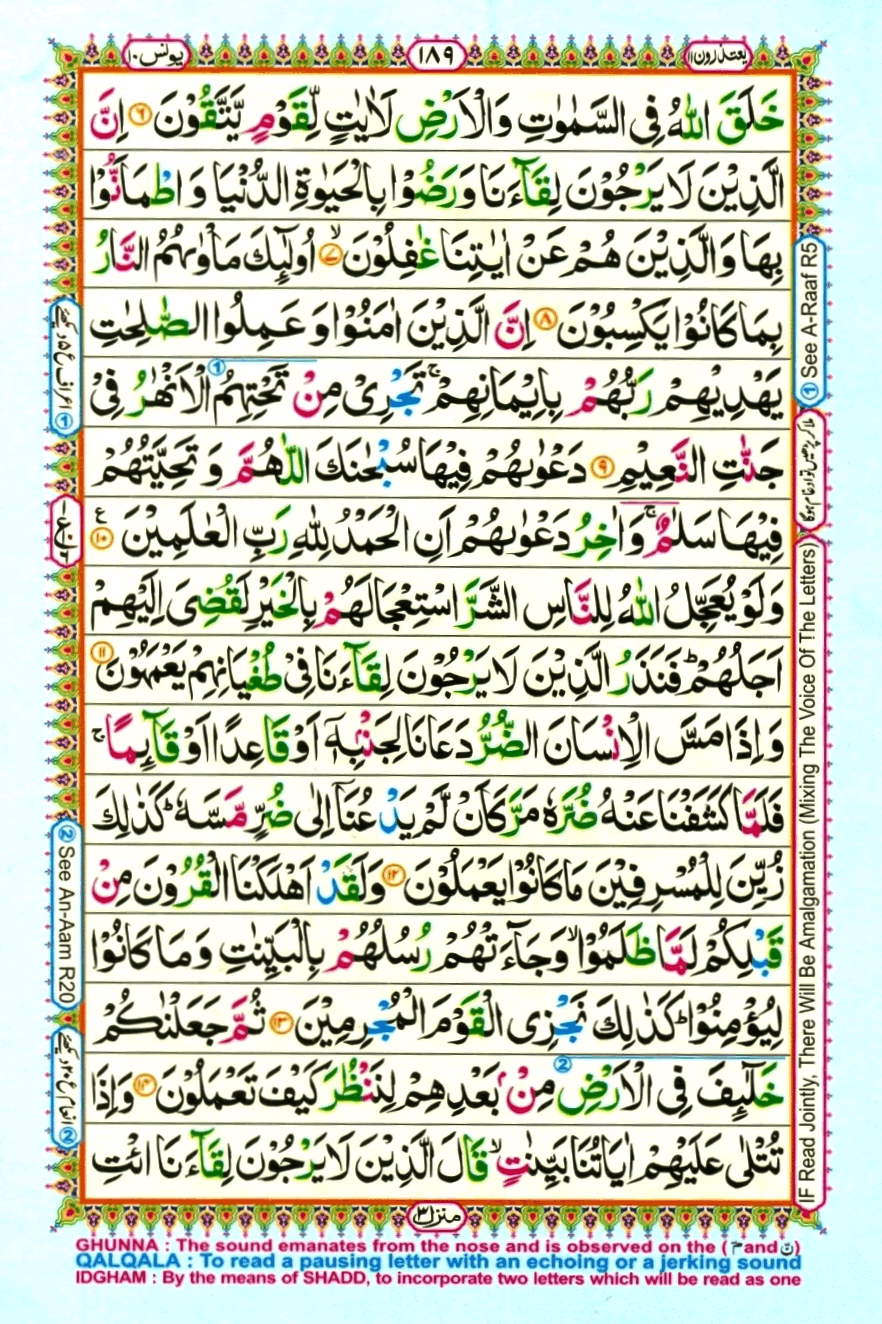 يعتذرون ١١
١٨٩
يونس ١٠
خَلَقَ اللّٰهُ فِى السَّمٰوٰتِ وَالْاَرْضِ لَاٰيٰتٍ لِّقَوْمٍ يَّتَّقُوْنَ ۶ اِنَّ
الَّذِيْنَ لَا يَرْجُوْنَ لِقَآءَنَا وَرَضُوْا بِالْحَيٰوةِ الدُّنْيَا وَ اطْمَاَنُّوْا
بِهَا وَالَّذِيْنَ هُمْ عَنْ اٰيٰتِنَا غٰفِلُوْنَ ۙ ۷ اُولٰٓئِكَ مَاْوٰىهُمُ النَّارُ
بِمَا كَانُوْا يَكْسِبُوْنَ ۸ اِنَّ الَّذِيْنَ اٰمَنُوْا وَ عَمِلُوا الصّٰلِحٰتِ
يَهْدِيْهِمْ رَبُّهُمْ بِاِيْمَانِهِمْ ۚ تَجْرِىْ مِنْ تَحْتِهِمُ ① الْاَنْهٰرُ فِىْ
جَنّٰتِ النَّعِيْمِ ۹ دَعْوٰىهُمْ فِيْهَا سُبْحٰنَكَ اللّٰهُمَّ وَ تَحِيَّتُهُمْ
فِيْهَا سَلٰمٌ ۚ وَاٰخِرُ دَعْوٰىهُمْ اَنِ الْحَمْدُ لِلّٰهِ رَبِّ الْعٰلَمِيْنَ ع ۱۰
وَلَوْ يُعَجِّلُ اللّٰهُ لِلنَّاسِ الشَّرَّ اسْتِعْجَالَهُمْ بِالْخَيْرِ لَقُضِىَ اِلَيْهِمْ
اَجَلُهُمْ ؕ فَنَذَرُ الَّذِيْنَ لَا يَرْجُوْنَ لِقَآءَنَا فِىْ طُغْيَانِهِمْ يَعْمَهُوْنَ ۱۱
وَاِذَا مَسَّ الْاِنْسَانَ الضُّرُّ دَعَانَا لِجَنْۢبِهٖۤ اَوْ قَاعِدًا اَوْ قَآئِمًا ۚ
فَلَمَّا كَشَفْنَا عَنْهُ ضُرَّهٗ مَرَّ كَاَنْ لَّمْ يَدْعُنَاۤ اِلٰى ضُرٍّ مَّسَّهٗ ؕ كَذٰلِكَ
زُيِّنَ لِلْمُسْرِفِيْنَ مَا كَانُوْا يَعْمَلُوْنَ ۱۲ وَلَقَدْ اَهْلَكْنَا الْقُرُوْنَ مِنْ
قَبْلِكُمْ لَمَّا ظَلَمُوْا ۙ وَجَآءَتْهُمْ رُسُلُهُمْ بِالْبَيِّنٰتِ وَمَا كَانُوْا
لِيُؤْمِنُوْا ؕ كَذٰلِكَ نَجْزِى الْقَوْمَ الْمُجْرِمِيْنَ ۱۳ ثُمَّ جَعَلْنٰكُمْ
خَلٰٓئِفَ فِى الْاَرْضِ ② مِنْۢ بَعْدِهِمْ لِنَنْظُرَ كَيْفَ تَعْمَلُوْنَ ۱۴ وَاِذَا
تُتْلٰى عَلَيْهِمْ اٰيَاتُنَا بَيِّنٰتٍ ۙ قَالَ الَّذِيْنَ لَا يَرْجُوْنَ لِقَآءَنَا ائْتِ
① See A-Raaf R5
ملا کر پڑھیں تو ادغام ہوگا
IF Read Jointly, There Will Be Amalgamation (Mixing The Voice Of The Letters)
① اعراف ع ۵ دیکھئے
② See An-Aam R20
② انعام ع ۲۰ دیکھئے
منزل ٣
GHUNNA : The sound emanates from the nose and is observed on the (مّ and نّ)
QALQALA : To read a pausing letter with an echoing or a jerking sound
IDGHAM : By the means of SHADD, to incorporate two letters which will be read as one